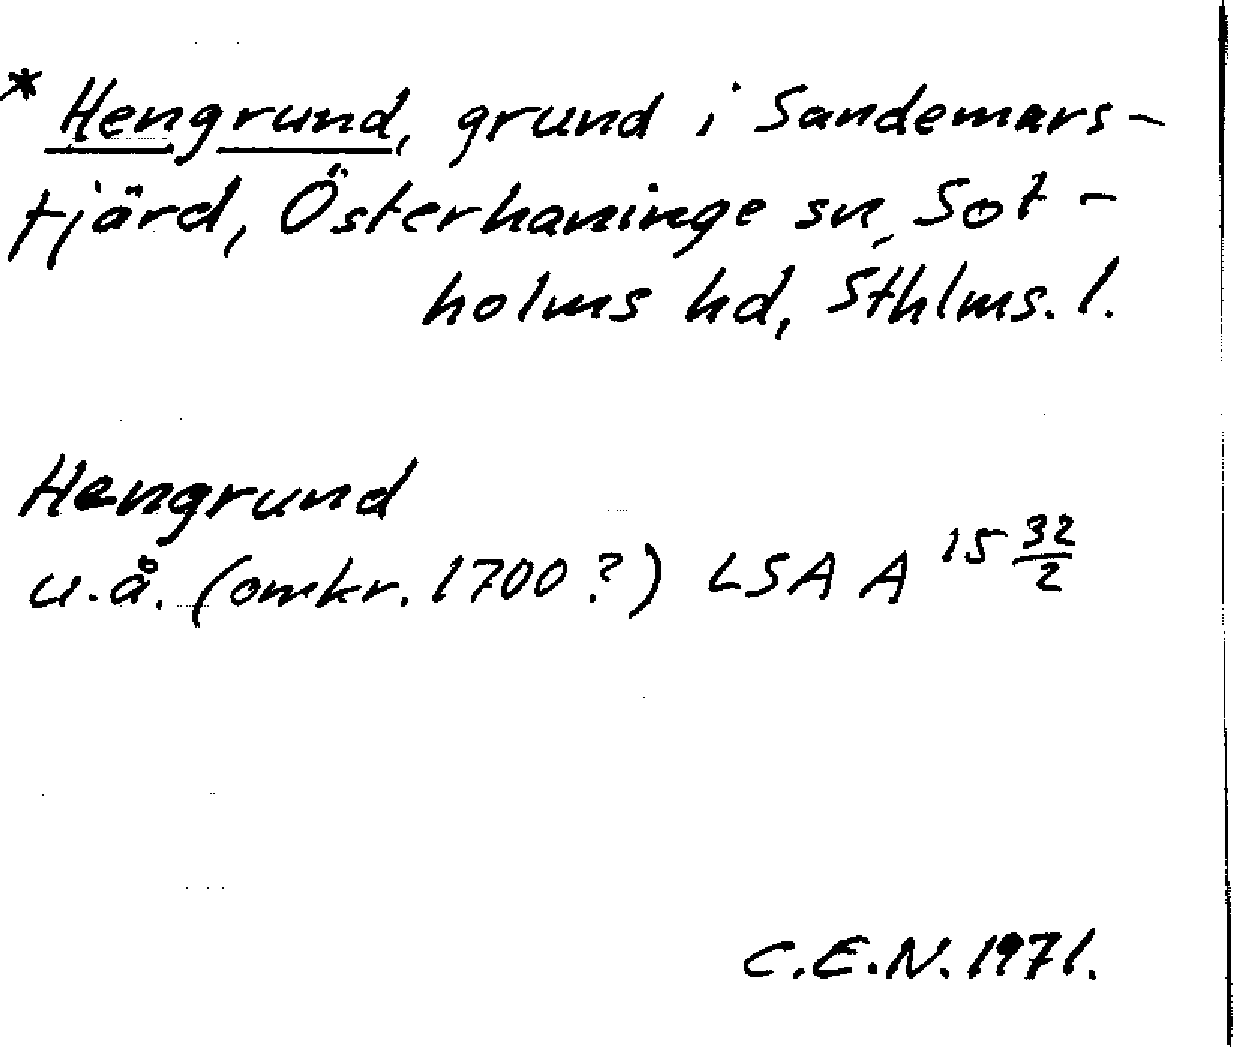 * Hengrund, grund i Sandemars-
fjärd, Österhaninge sn, Sot-
holms hd, Sthlms. l.
Hengrund
u.å. (omkr. 1700?) LSA A 15 32/2
C.E.N. 1971.